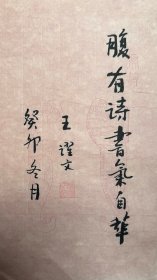 腹有诗書氣自華
王躍文
癸卯冬月